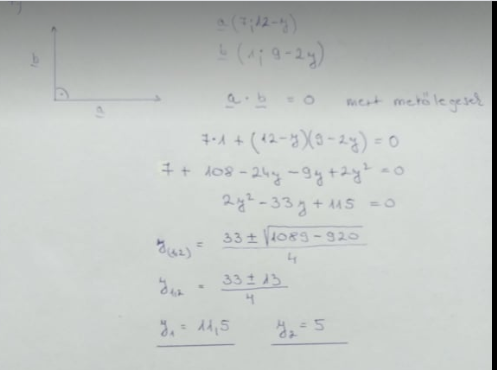 a (7; 12-y)
b (1; 9-2y)
b
a
a · b = 0 mert merőlegesek
7·1 + (12-y)(9-2y) = 0
7 + 108 - 24y - 9y + 2y² = 0
2y² - 33y + 115 = 0
y(1,2) = (33 ± √(1089 - 920)) / 4
y1,2 = (33 ± 13) / 4
y₁ = 11,5 y₂ = 5